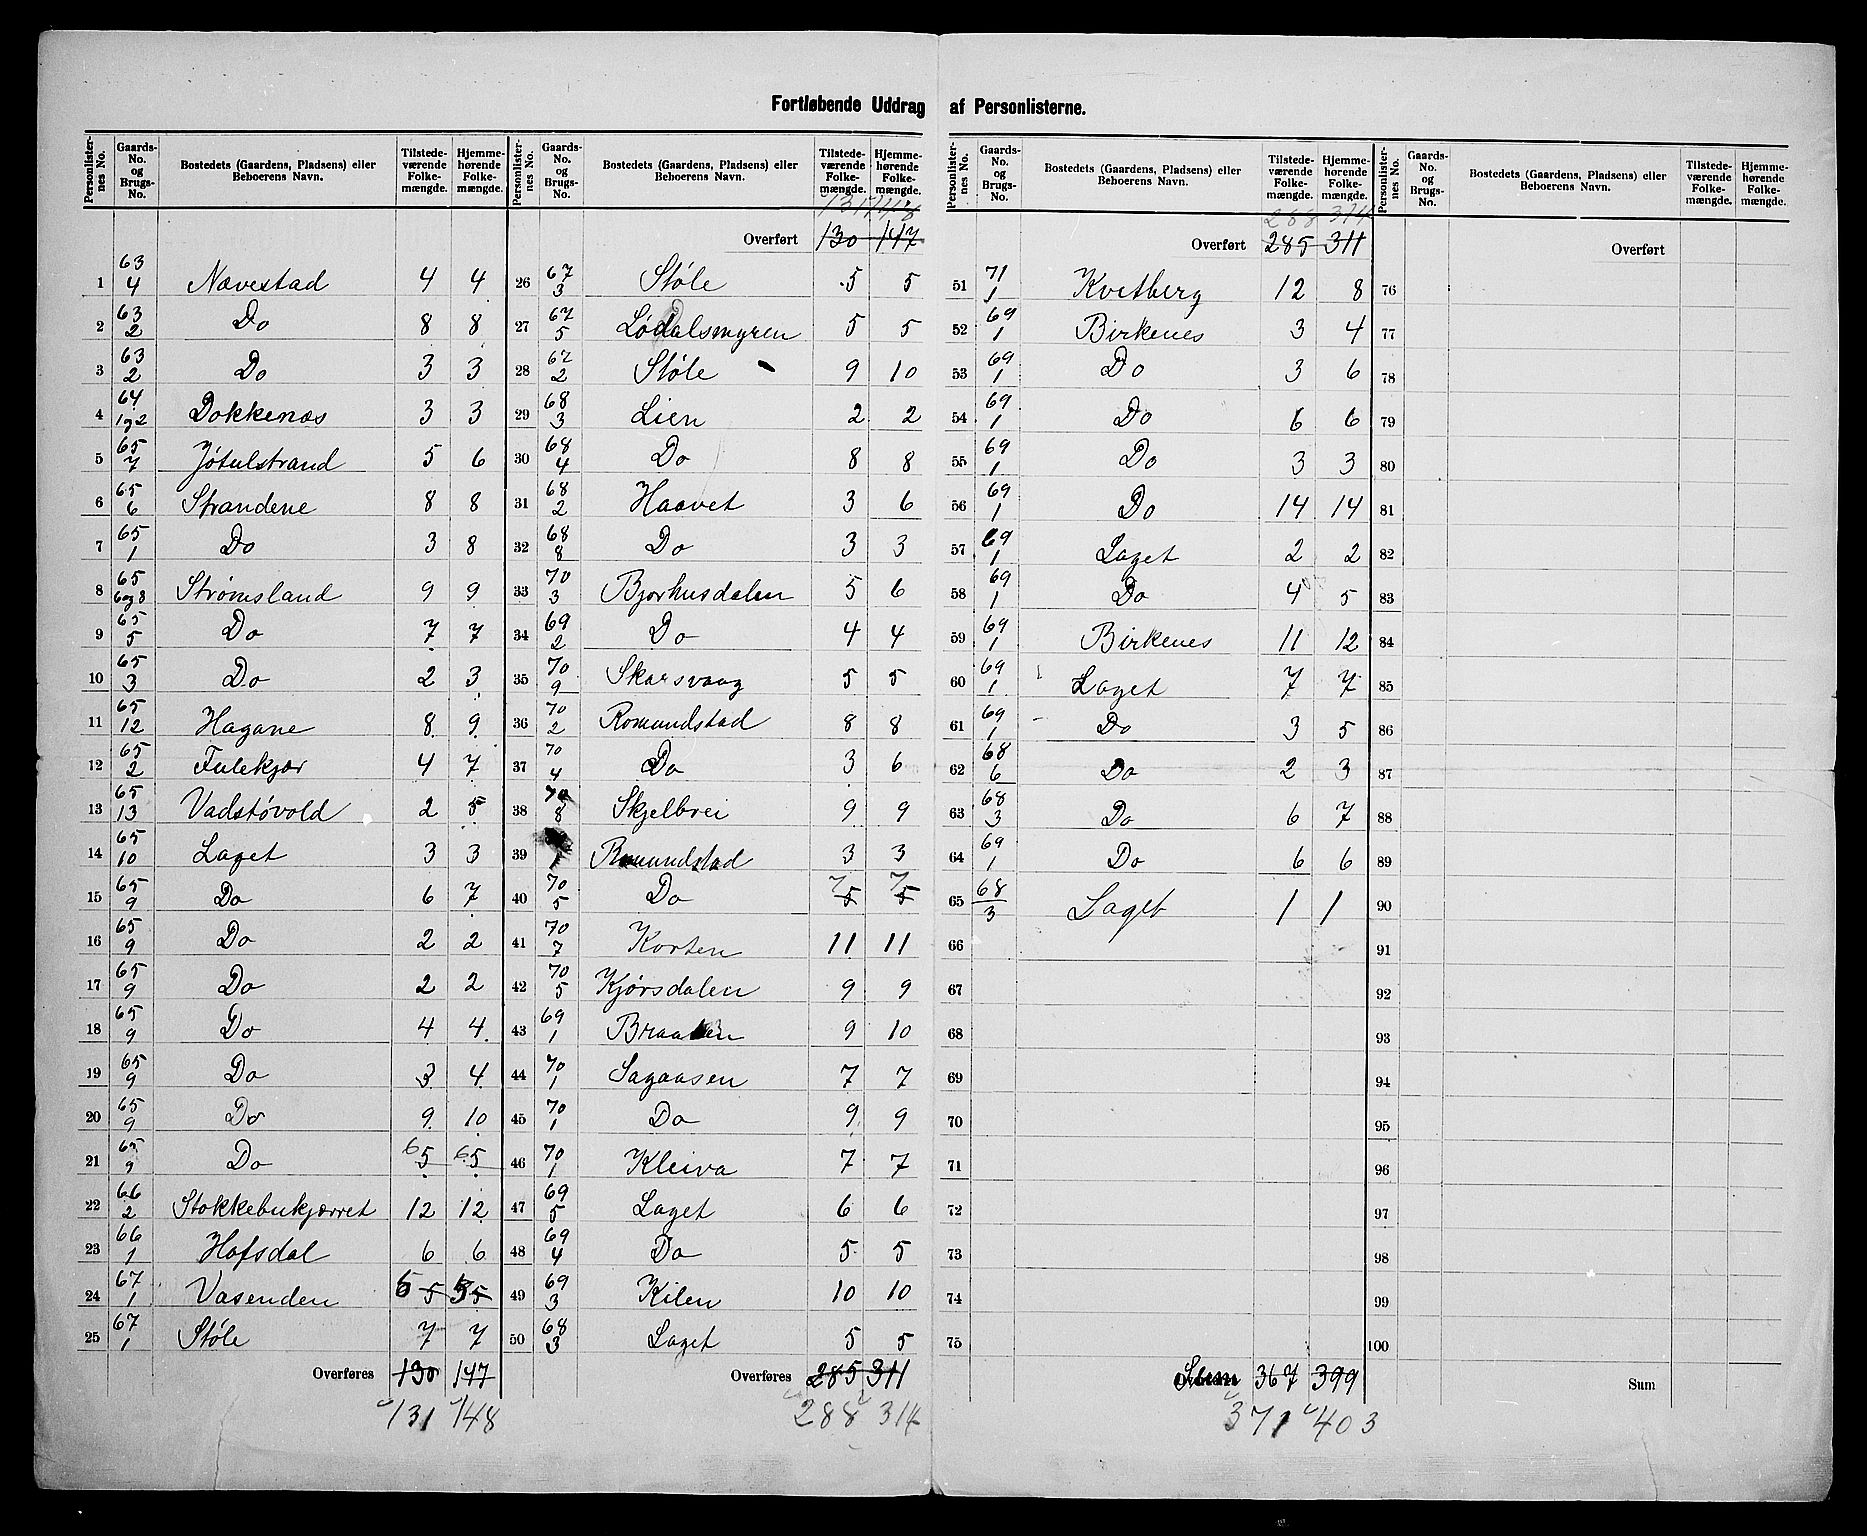 Fortløbende Uddrag af Personlisterne.
Personlister-nes No. | Gaards-No. og Brugs-No. | Bostedets (Gaardens, Pladsens) eller Beboerens Navn. | Tilstede-værende Folke-mængde. | Hjemme-hørende Folke-mængde.
1 63/4 Nævestad 4 4
2 63/2 Do 8 8
3 63/2 Do 3 3
4 64/1og2 Dokkenæs 3 3
5 65/7 Jøtulstrand 5 6
6 65/6 Strandene 8 8
7 65/1 Do 3 8
8 65/6og8 Strømsland 9 9
9 65/5 Do 7 7
10 65/3 Do 2 3
11 65/12 Hagane 8 9
12 65/2 Fulekjær 4 7
13 65/13 Vadstøvold 2 5
14 65/10 Laget 3 3
15 65/9 Do 6 7
16 65/9 Do 2 2
17 65/9 Do 2 2
18 65/9 Do 4 4
19 65/9 Do 3 4
20 65/9 Do 9 10
21 65/9 Do 6 5 6 5
22 66/2 Stokkebukjærret 12 12
23 66/1 Hafsdal 6 6
24 67/1 Vasenden 5 5 5 5
25 67/1 Støle 7 7
Overføres 130 147
131 148
Personlister-nes No. | Gaards-No. og Brugs-No. | Bostedets (Gaardens, Pladsens) eller Beboerens Navn. | Tilstede-værende Folke-mængde. | Hjemme-hørende Folke-mængde.
131 148
Overført 130 147
26 67/3 Støle 5 5
27 67/5 Lødalsmyren 5 5
28 67/2 Støle 9 10
29 68/3 Lien 2 2
30 68/4 Do 8 8
31 68/2 Haavet 3 6
32 68/8 Do 3 3
33 70/3 Bjorhusdalen 5 6
34 69/2 Do 4 4
35 70/9 Skarsvaag 5 5
36 70/2 Romundstad 8 8
37 70/4 Do 3 6
38 70/8 Skjelbrei 9 9
39 1 Romundstad 3 3
40 70/5 Do 7 5 7 5
41 70/7 Korten 11 11
42 70/5 Kjørsdalen 9 9
43 69/1 Braaten 9 10
44 70/1 Sagaasen 7 7
45 70/1 Do 9 9
46 70/1 Kleiva 7 7
47 69/5 Laget 6 6
48 69/4 Do 5 5
49 69/3 Kilen 10 10
50 68/3 Laget 5 5
Overføres 285 311
288 314
Personlister-nes No. | Gaards-No. og Brugs-No. | Bostedets (Gaardens, Pladsens) eller Beboerens Navn. | Tilstede-værende Folke-mængde. | Hjemme-hørende Folke-mængde.
288 314
Overført 285 311
51 71/1 Kvetberg 12 8
52 69/1 Birkenes 3 4
53 69/1 Do 3 6
54 69/1 Do 6 6
55 69/1 Do 3 3
56 69/1 Do 14 14
57 69/1 Laget 2 2
58 69/1 Do 4 5
59 69/1 Birkenes 11 12
60 69/1 Laget 7 7
61 69/1 Do 3 5
62 68/6 Do 2 3
63 68/3 Do 6 7
64 69/1 Do 6 6
65 68/3 Laget 1 1
66
67
68
69
70
71
72
73
74
75
Sum 367 399
371 403
Personlister-nes No. | Gaards-No. og Brugs-No. | Bostedets (Gaardens, Pladsens) eller Beboerens Navn. | Tilstede-værende Folke-mængde. | Hjemme-hørende Folke-mængde.
Overført
76
77
78
79
80
81
82
83
84
85
86
87
88
89
90
91
92
93
94
95
96
97
98
99
100
Sum